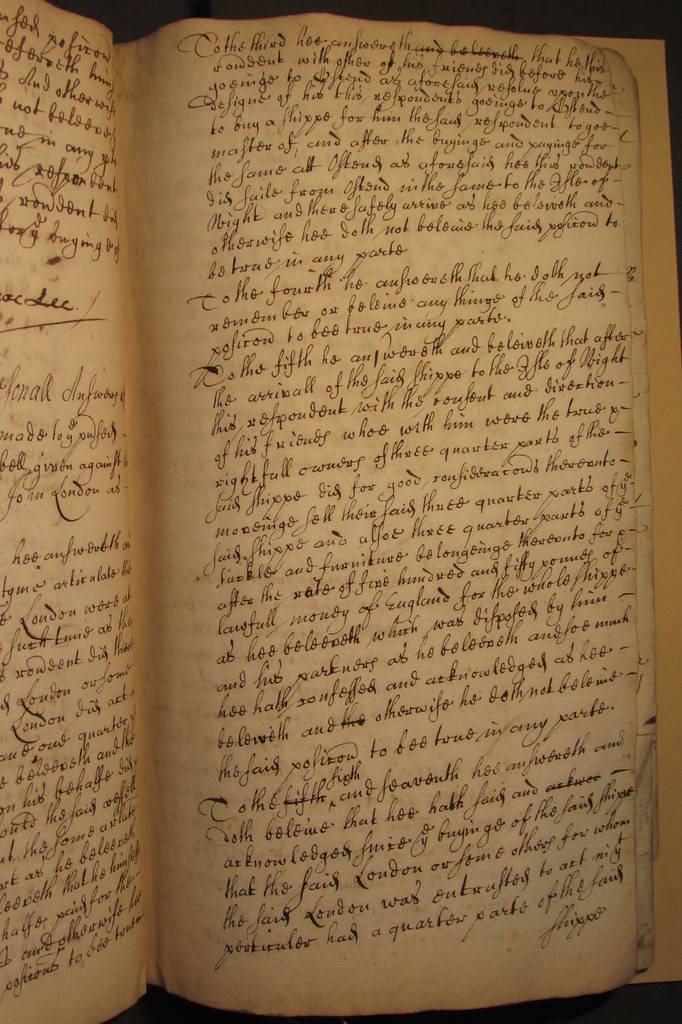 nsed posicon
eferreth him
And otherwise
not beleeve
ne in any p
his respondent
rondent did
for ye buyinge of
doc Lee.
sonall Answers
made to ye posicons
bell given against
John London as
hee answereth
tyme articulate the
e London were at
such time as the
rondent did the
d London or some
London did act
ane one quarter
e beleeveth and the
on his behalfe did
ould the said vessell
ut the some arlate
rt as he beleeveth
leeveth that he himselfe
halfe paid for the
s and otherwise hee
posicons to bee true in
To the third hee answereth and beleeveth that he this
rondent with other of his friends did before his
goeinge to Ostend as aforesaid resolve upon the
designe of his this respondents goeinge to Ostend
to buy a shippe for him the said respondent to goe
master of, and after the buyinge and payinge for
the same att Ostend as aforesaid hee this rondent
did saile from Ostend in the same to the Isle of
Wight and there safely arrive as hee beleveth and
otherwise hee doth not beleeive the said posicon to
be true in any parte
To the fourth he answereth that he doth not
remember or beleive any thinge of the said
posicon to bee true in any parte.
To the fifth he answereth and beleiveth that after
the arrivall of the said shippe to the Isle of Wight
this respondent with the consent and direction
of his friends whoe with him were the true &
rightfull owners of three quarter parts of the
said shippe did for good consideracons thereunto
moveinge sell their said three quarter parts of ye
said shippe and alsoe three quarter parts of ye
tackle and furniture belongeinge thereunto for &
after the rate of five hundred and fiffty pounes of
lawfull money of England for the whole shippe
as hee beleeveth which was disposed by him
and his partners as he beleeveth and soe much
hee hath confessed and acknowledged as hee
beleiveth and the otherwise he doth not beleive
the said posicon to bee true in any parte.
To the fifth sixth and seaventh hee answereth and
doth beleive that hee hath said and acknow
acknowledged since ye buyinge of the said shippe
that the said London or some others for whom
the said London was entrusted to act in yt
perticuler had a quarter parte of the said
shippe